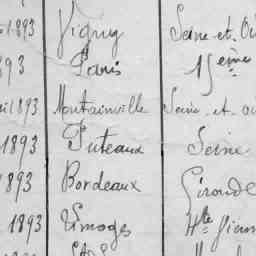 1893 Vigny Seine-et-Oi
893 Paris 15ème
1893 Montainville Seine-et-Oi
1893 Puteaux Seine
1893 Bordeaux Gironde
1893 Limoges Hte Vienn